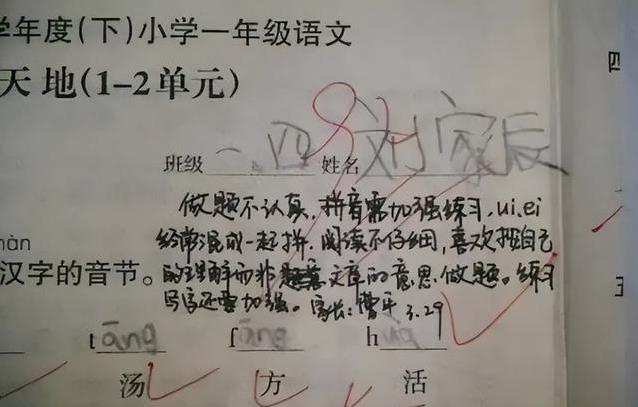 学年度(下)小学一年级语文
天地(1-2单元)
班级 一、四 姓名 刘家辰
做题不认真,拼音需加强练习,ui、ei
经常混成一起拼.阅读不仔细,喜欢按自己
的理解而非文章的意思做题。练习
写字还要加强。家长:曹平 3.29
màn
汉字的音节。
tāng fāng huó
汤 方 活
四
三